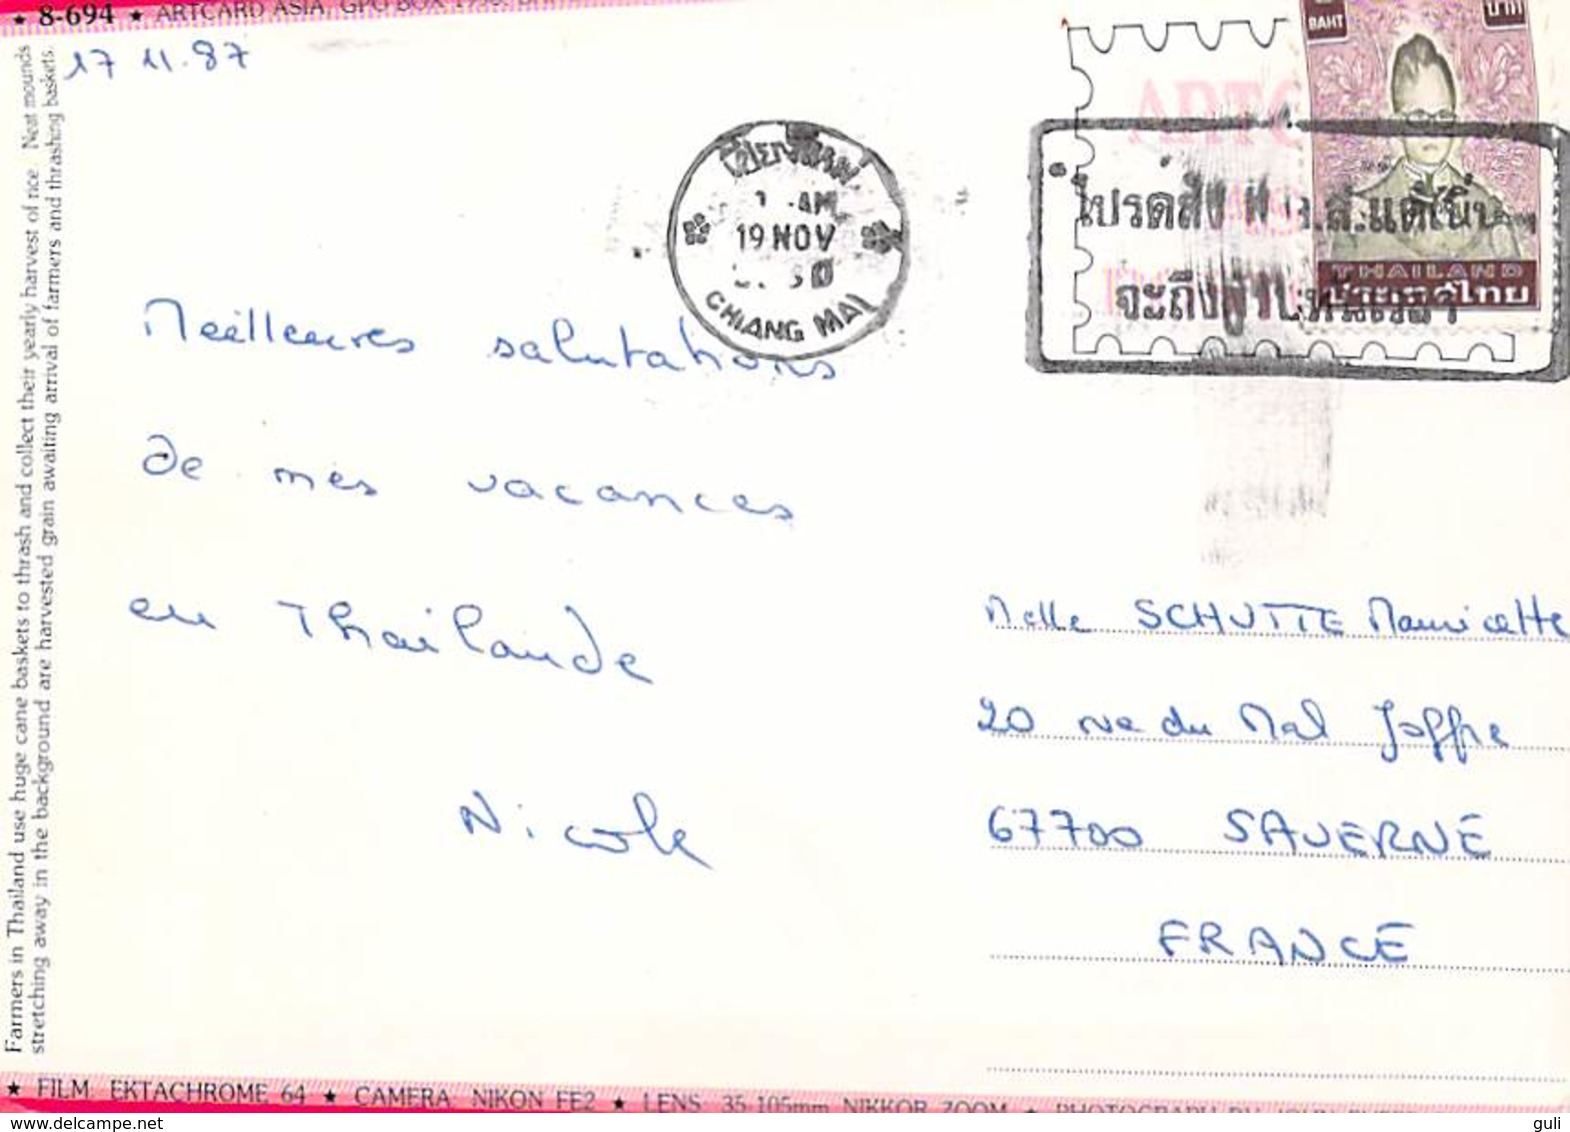 ★ 8-694 ★ ARTCARD ASIA, GPO BOX
17 11.87
Farmers in Thailand use huge cane baskets to thrash and collect their yearly harvest of rice. Neat mounds
stretching away in the background are harvested grain awaiting arrival of farmers and thrashing baskets.
BAHT
บาท
THAILAND
ประเทศไทย
เชียงใหม่
AM
19 NOV
CHIANG MAI
โปรดส่ง
จะถึง
Meilleures salutations
de mes vacances
en Thailande
Nicole
Melle SCHUTTE Mauricette
20 rue du Mal Joffre
67700 SAVERNE
FRANCE
★ FILM: EKTACHROME 64 ★ CAMERA: NIKON FE2 ★ LENS: 35-105mm NIKKOR ZOOM ★ PHOTOGRAPH BY
www.delcampe.net
guli